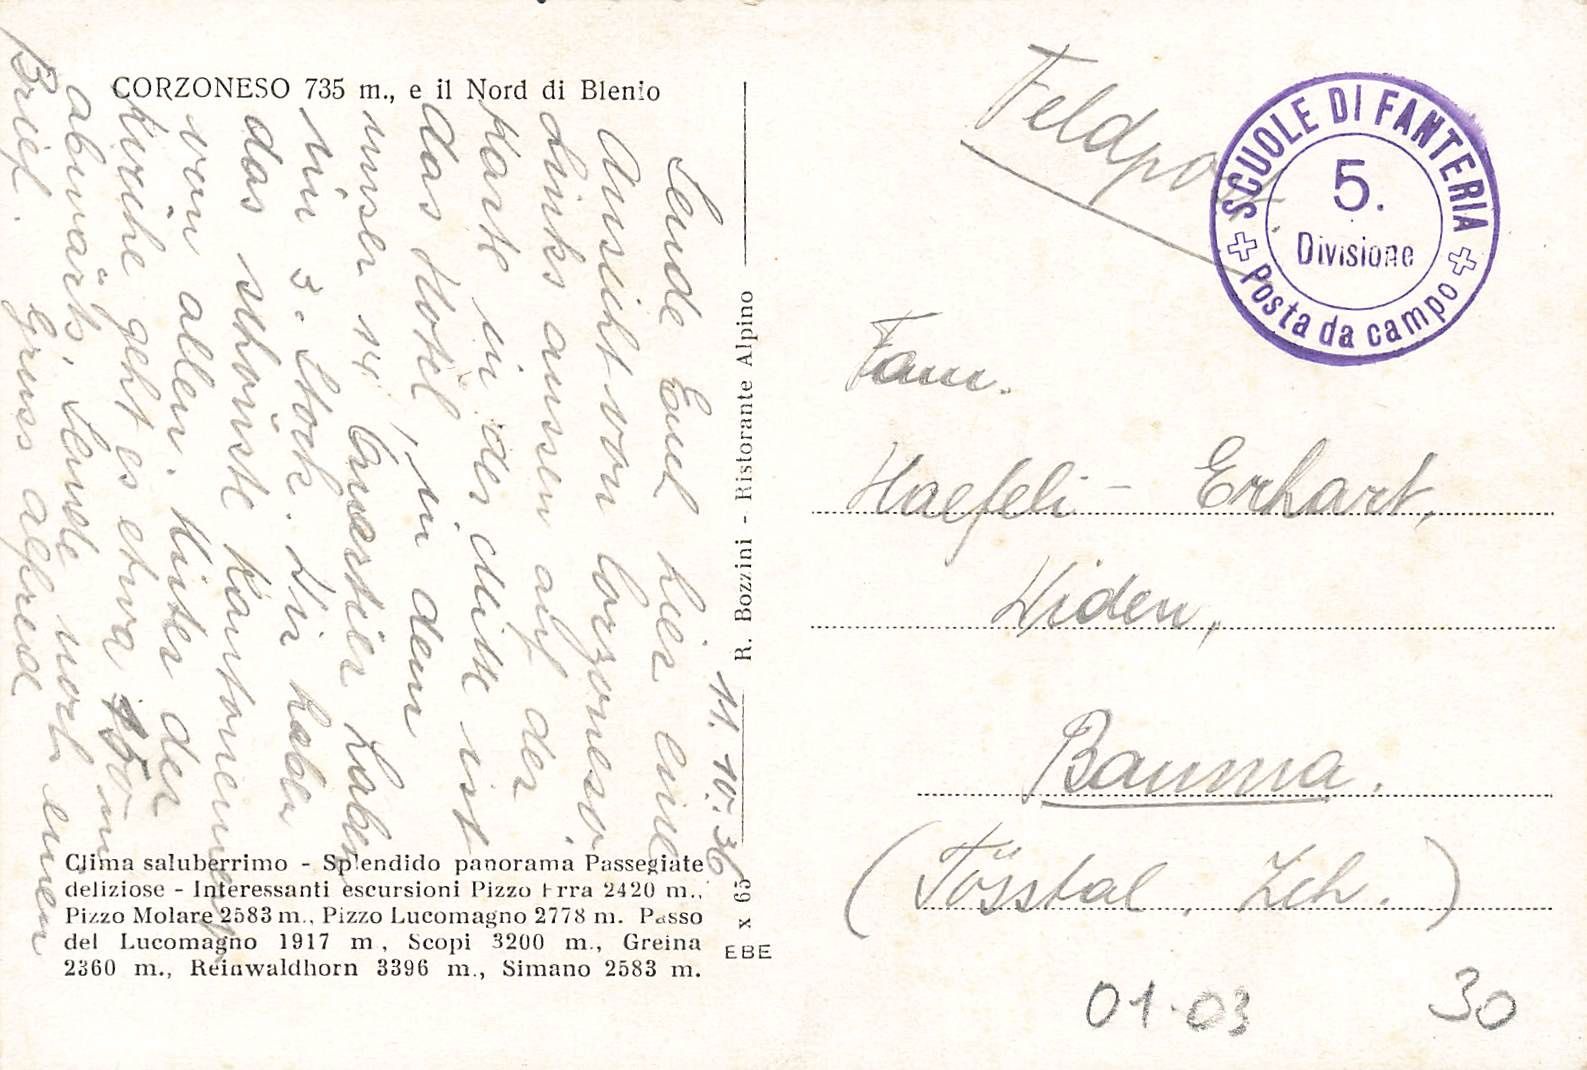 CORZONESO 735 m., e il Nord di Blenio
11.10.36
Sende Euch hier eine
Ansicht von Corzoneso
Links aussen auf der
Karte in der Mitte ist
das Hotel, in dem
unser 14 Quartier haben
im 3. Stock. Wir haben
das schönste Kantonement
von allen. Hinter der
Kirche geht es etwa 150 m
abwärts, Sende noch einen
Brief. Gruss Alfred
Clima saluberrimo - Splendido panorama Passegiate
deliziose - Interessanti escursioni Pizzo Erra 2420 m.,
Pizzo Molare 2583 m., Pizzo Lucomagno 2778 m. Passo
del Lucomagno 1917 m, Scopi 3200 m., Greina
2360 m., Reinwaldhorn 3396 m., Simano 2583 m.
R. Bozzini - Ristorante Alpino
x 65
EBE
Feldpost.
SCUOLE DI FANTERIA
5.
Divisione
Posta da campo
Fam.
Haefeli - Erhart,
Widen,
Bauma.
(Tösstal, Zch.)
01-03
30